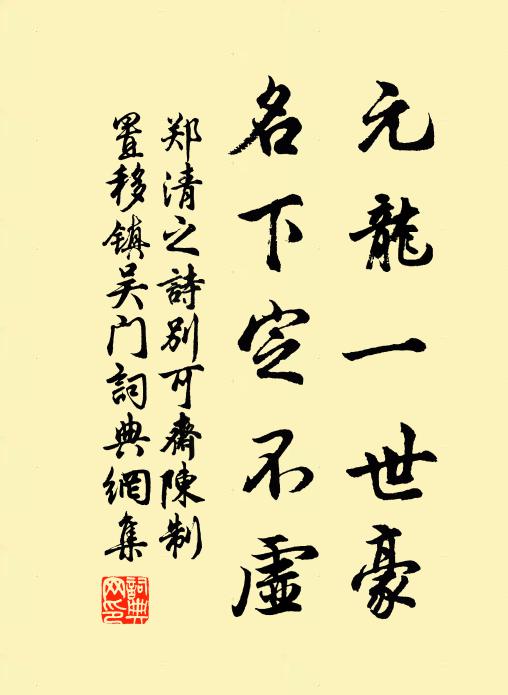 元龍一世豪
名下定不虛
郑清之詩別可齋陳制
置移鎮吴门詞典網集
詞典網印